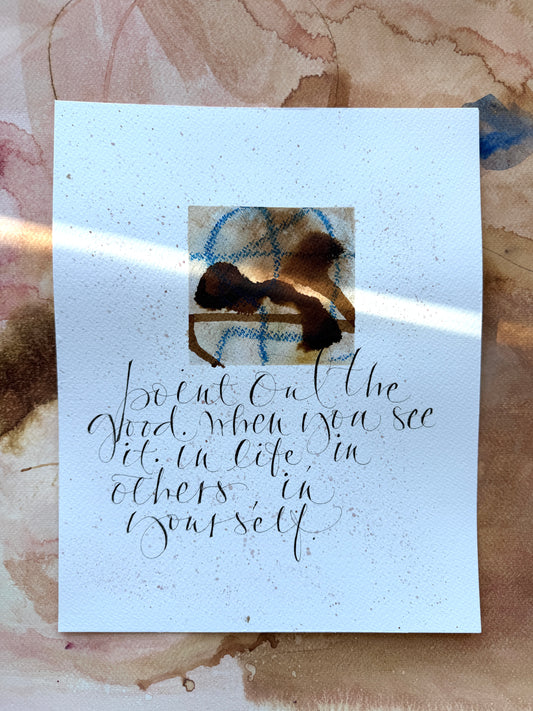 point out the
good. when you see
it. in life, in
others, in
yourself.